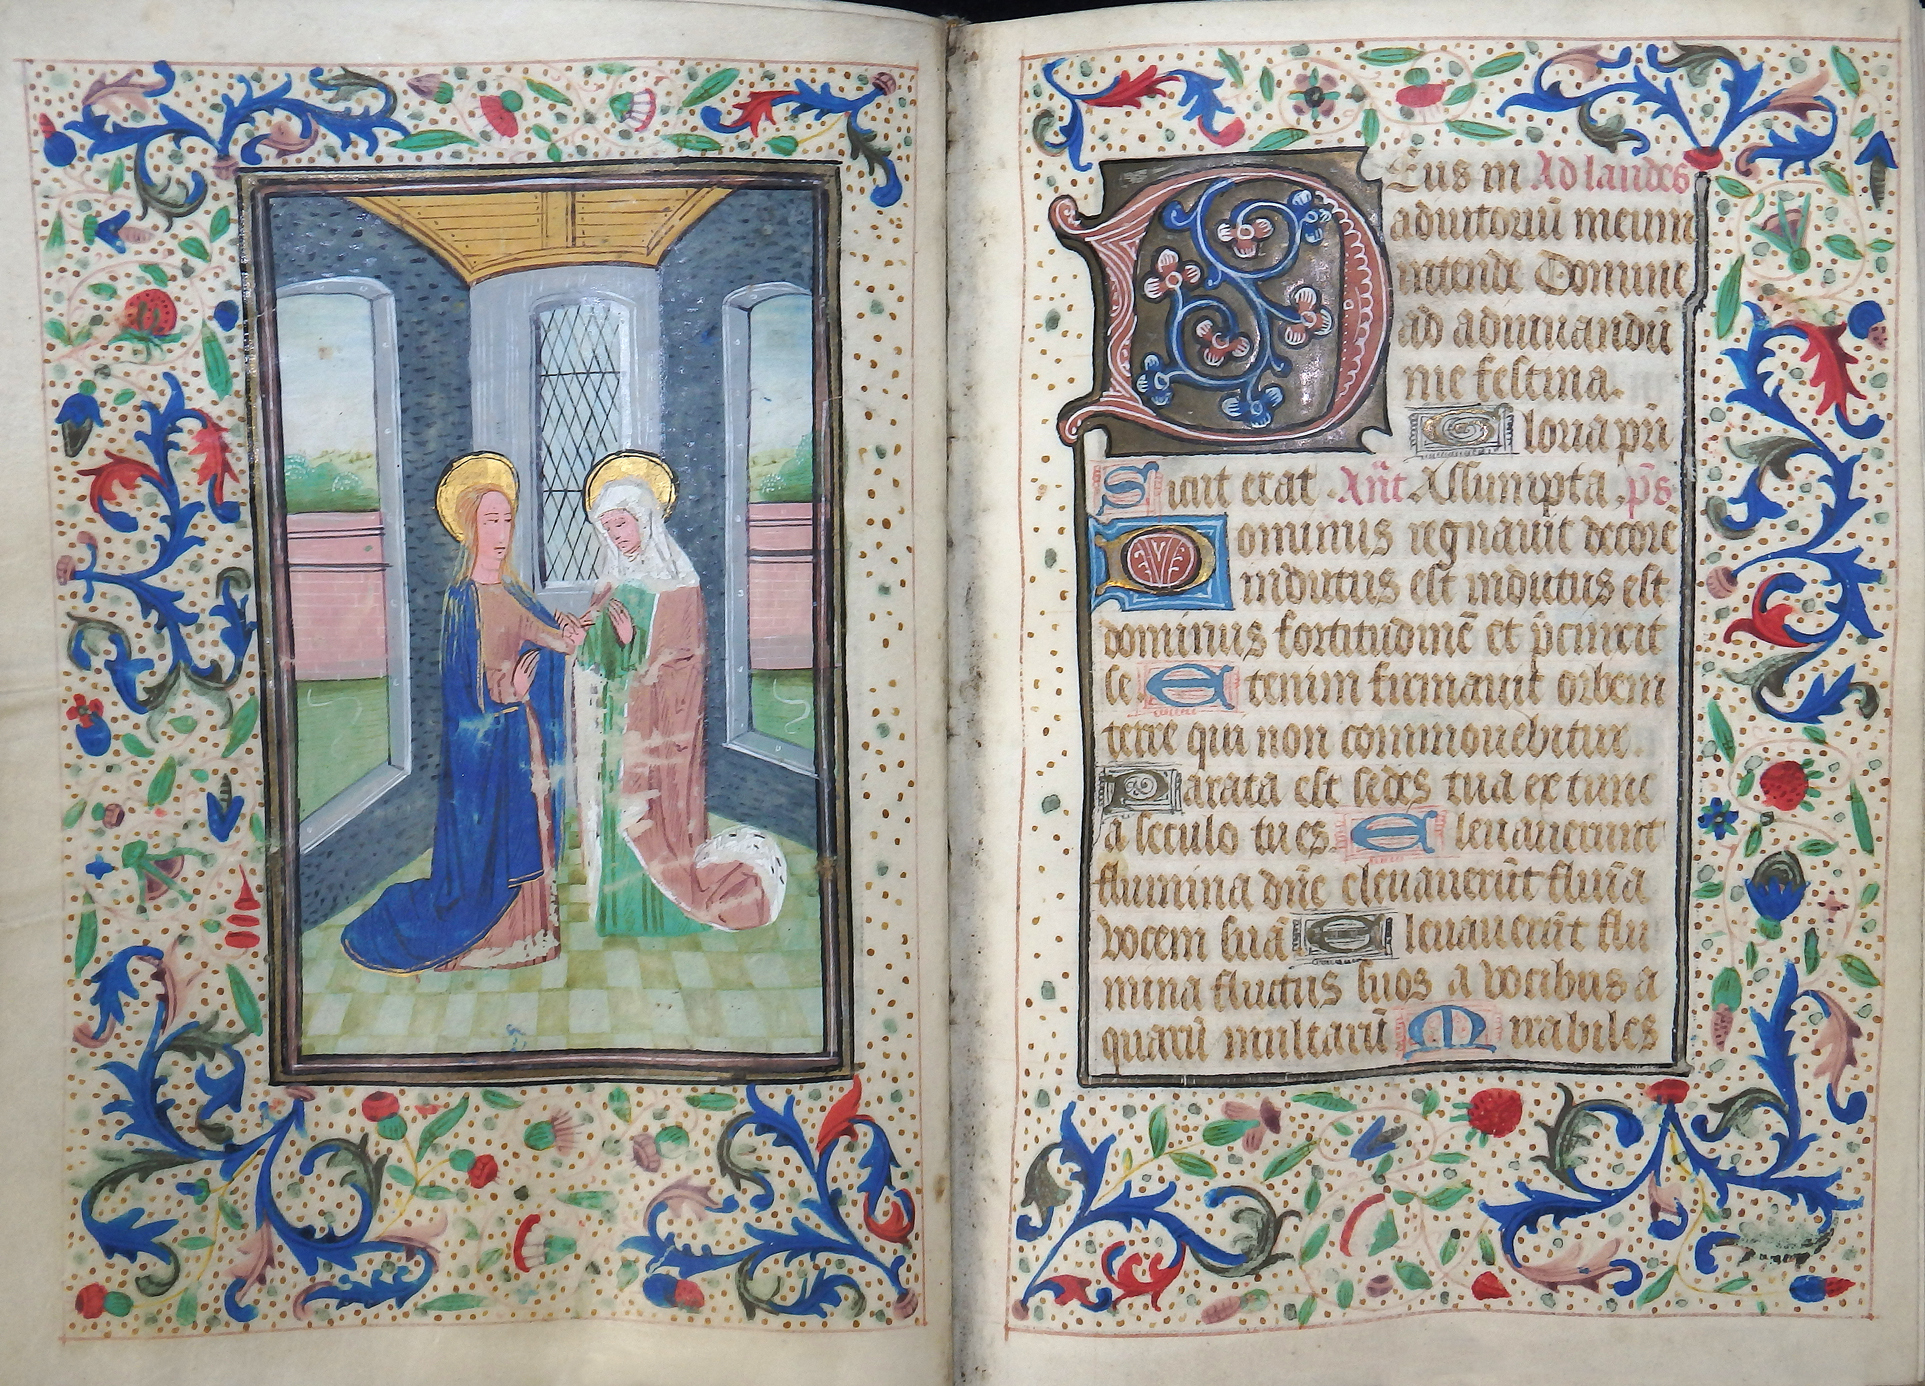 Deus in Ad laudes
adiutoriū meum
intende Domine
ad adiuuandū
me festina.
Gloria pri
Sicut erat . Ant Assumpta . ps
Dominus regnauit decorē
indutus est indutus est
dominus fortitudinē et p̄cinxit
se Etenim firmauit orbem
terre qui non commouebitur.
Parata est sedes tua ex tunc
a seculo tu es Eleuauerunt
flumina dn̄e eleuauerūt flūia
vocem suā Eleuauerūt flu
mina fluctus suos a vocibus a
quarū multarū Mirabiles